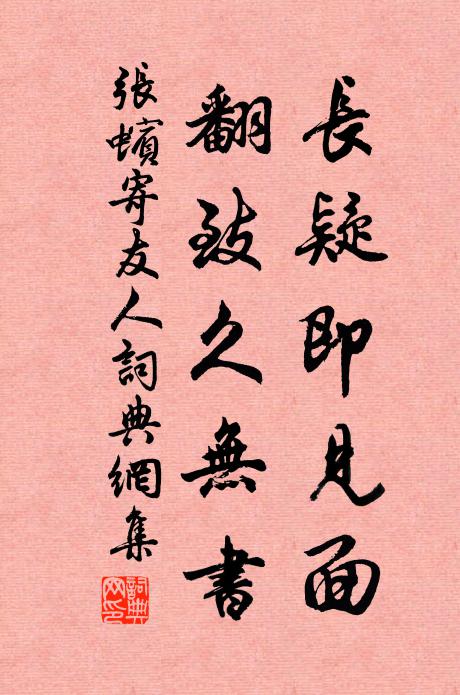 長疑即見面
翻致久無書
張蠙寄友人詞典網集
詞典網印